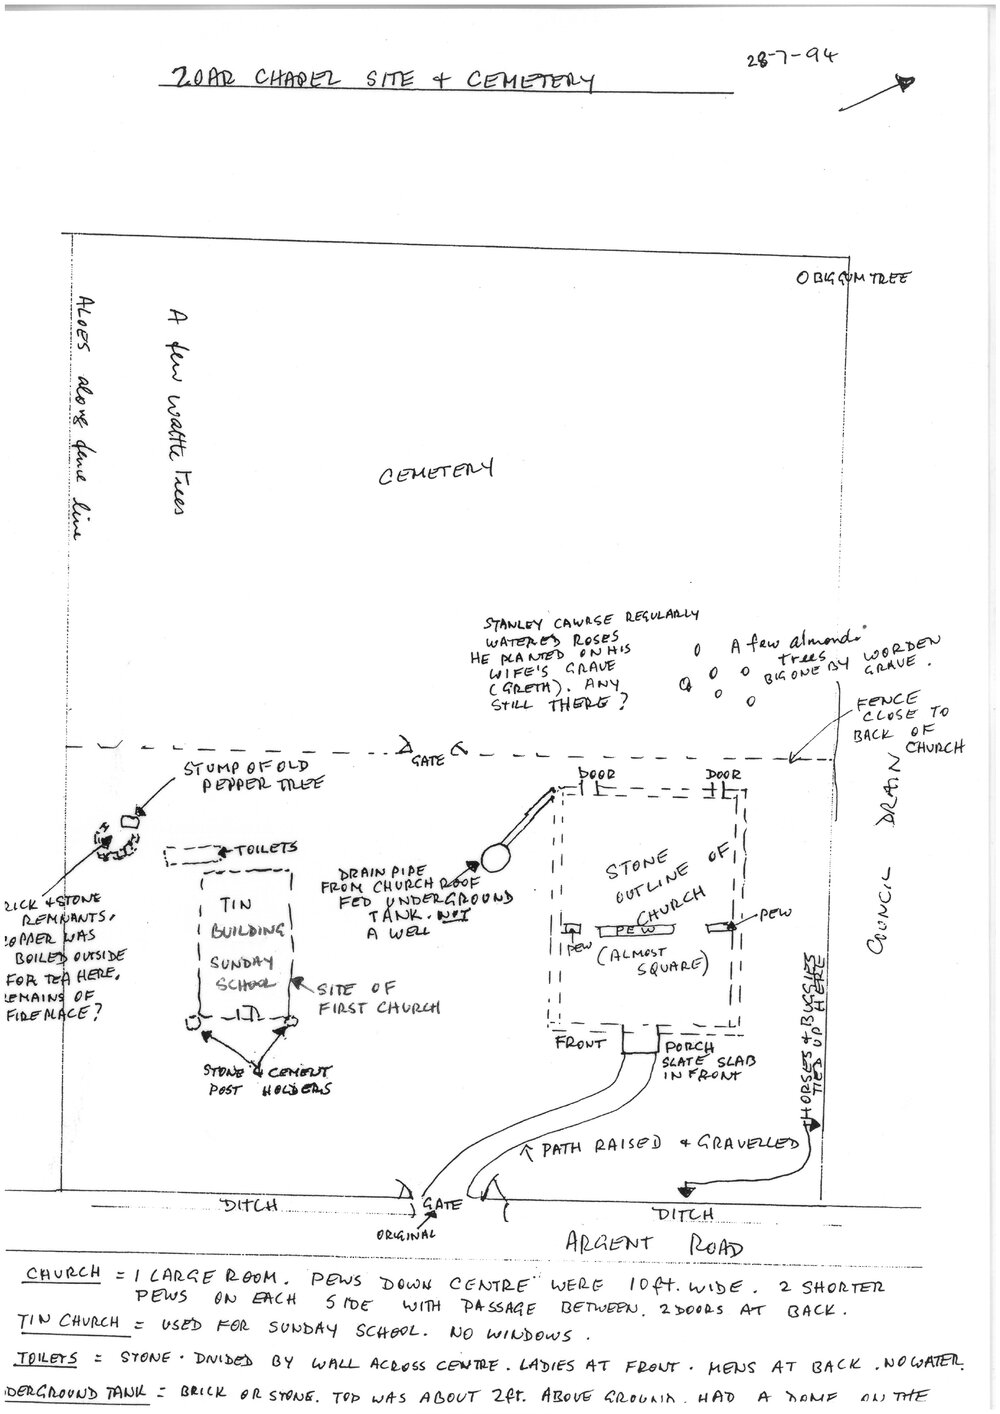 28-7-94
ZOAR CHAPEL SITE & CEMETERY
O BIG GUM TREE
ALOES along fence line
A few wattle Trees
CEMETERY
STANLEY CAWRSE REGULARLY
WATERED ROSES
HE PLANTED ON HIS
WIFE'S GRAVE
(GRETH). ANY
STILL THERE?
A few almond
trees
BIG ONE BY WORDEN
GRAVE.
FENCE
CLOSE TO
BACK OF
CHURCH
GATE
STUMP OF OLD
PEPPER TREE
DOOR
DOOR
COUNCIL DRAIN
TOILETS
DRAIN PIPE
FROM CHURCH ROOF
FED UNDERGROUND
TANK. NOT
A WELL
STONE
OUTLINE OF
CHURCH
(ALMOST
SQUARE)
PEW
PEW
PEW
RICK & STONE
REMNANTS.
OPPER WAS
BOILED OUTSIDE
FOR TEA HERE.
EMAINS OF
FIREPLACE?
TIN
BUILDING
SUNDAY
SCHOOL
SITE OF
FIRST CHURCH
STONE & CEMENT
POST HOLDERS
FRONT
PORCH
SLATE SLAB
IN FRONT
HORSES & BUGGIES
TIED UP HERE
PATH RAISED & GRAVELLED
DITCH
GATE
ORIGINAL
DITCH
ARGENT ROAD
CHURCH = 1 LARGE ROOM. PEWS DOWN CENTRE WERE 10ft. WIDE. 2 SHORTER
PEWS ON EACH SIDE WITH PASSAGE BETWEEN. 2 DOORS AT BACK.
TIN CHURCH = USED FOR SUNDAY SCHOOL. NO WINDOWS.
TOILETS = STONE. DIVIDED BY WALL ACROSS CENTRE. LADIES AT FRONT. MENS AT BACK. NO WATER.
DERGROUND TANK = BRICK OR STONE. TOP WAS ABOUT 2ft. ABOVE GROUND. HAD A DOME ON THE